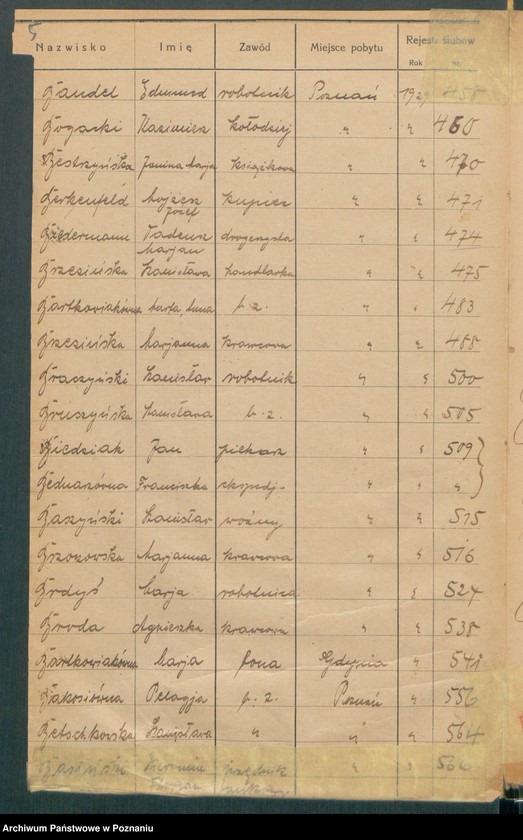 5
Nazwisko Imię Zawód Miejsce pobytu Rejestr ślubów
Rok nr.
Bandel Edmund robotnik Poznań 1929 458
Bogacki Kazimierz kołodziej " " 460
Bestrzyńska Janina Marja książkowa " " 470
Berkenfeld Mojżesz Józef kupiec " " 471
Biedermann Tadeusz Marjan drogerzysta " " 474
Brzezińska Stanisława handlarka " " 475
Bartkowiakówna Marta, Anna b. z. " " 483
Brzezińska Marjanna krawcowa " " 488
Braczyński Stanisław robotnik " " 500
Bruszyńska Stanisława b. z. " " 505
Biedziak Jan piekarz " " 509
Bednarzówna Franciszka ekspedj. " " "
Baszyński Stanisław woźny " " 515
Brzozowska Marjanna krawcowa " " 516
Brdyś Marja robotnica " " 524
Broda Agnieszka krawcowa " " 538
Bartkowiakówna Marja bona Gdynia " 541
Bakosiówna Pelagja b. z. Poznań " 556
Betschkowska Stanisława " " " 564
Basiński " " 566
Archiwum Państwowe w Poznaniu